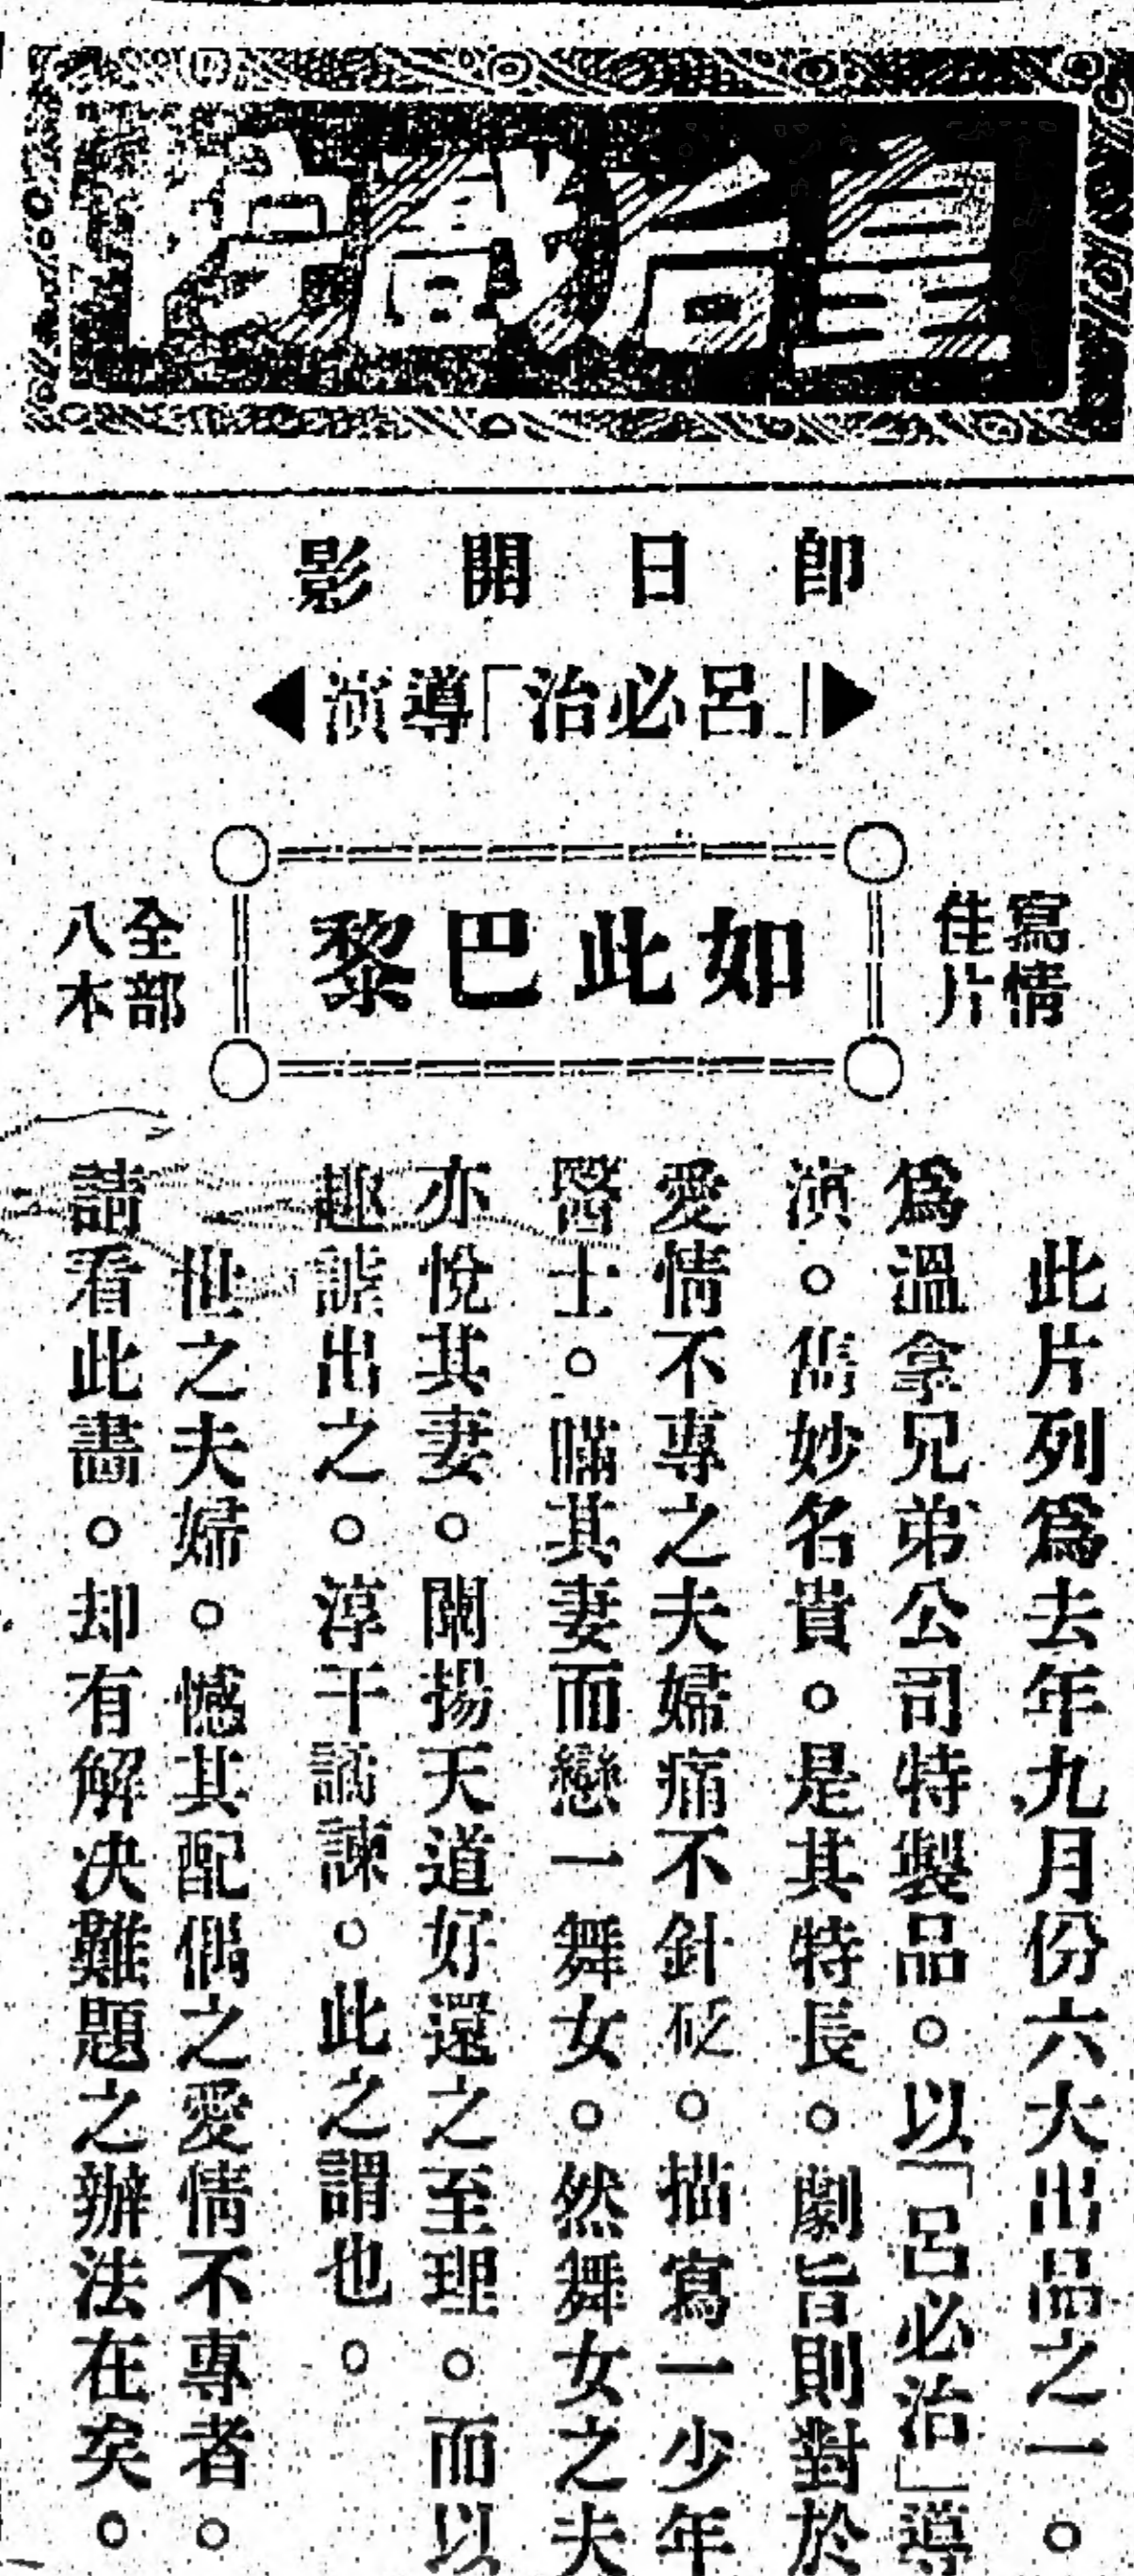 皇后戲院
即日開影
「呂必治」導演
寫情佳片
如此巴黎
全部八本
此片列爲去年九月份六大出品之一。
爲溫拿兄弟公司特製品。以「呂必治」導
演。雋妙名貴。是其特長。劇旨則對於
愛情不專之夫婦痛不針砭。描寫一少年
醫士。瞞其妻而戀一舞女。然舞女之夫
亦悅其妻。闡揚天道好還之至理。而以
趣謔出之。淳于譎諫。此之謂也。
世之夫婦。憾其配偶之愛情不專者。
請看此畵。却有解决難題之辦法在矣。